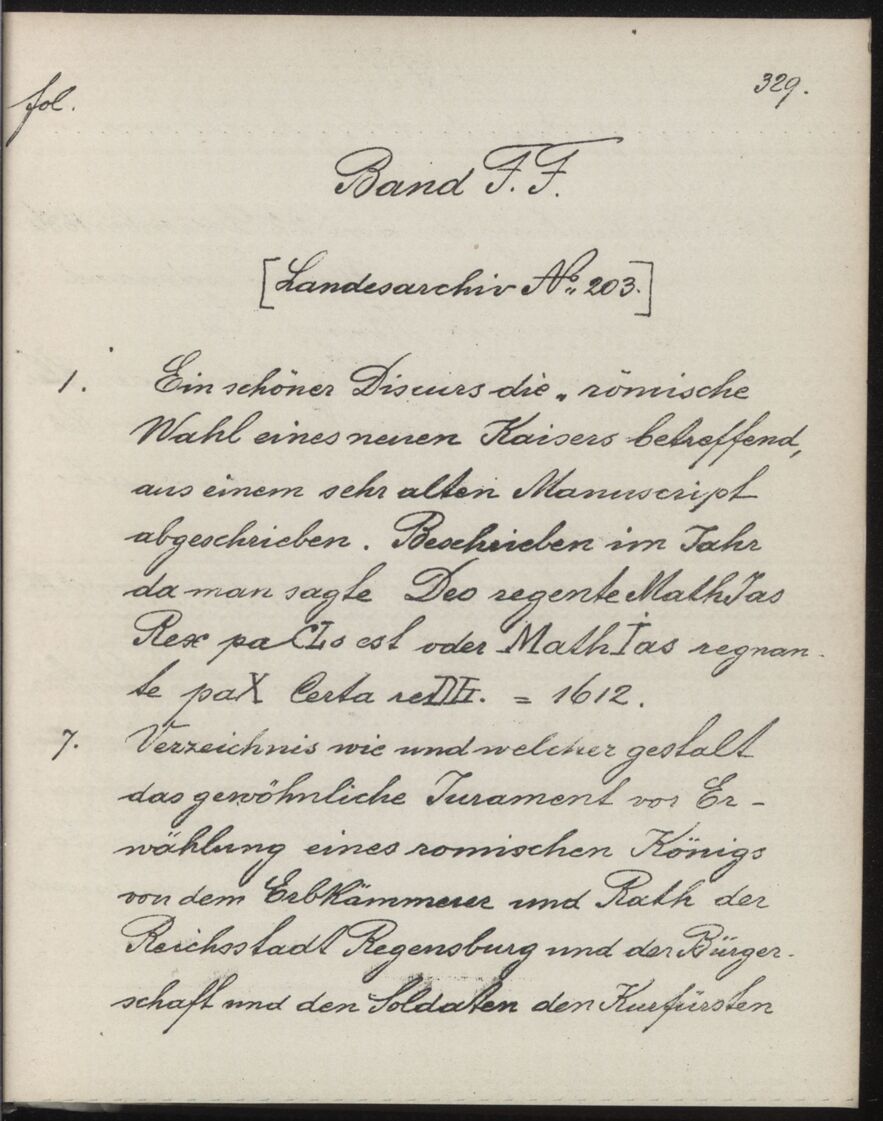 329.
fol.
Band F. F.
[Landesarchiv No. 203.]
1. Ein schöner Discurs die „ römische
Wahl eines neuen Kaisers betreffend,
aus einem sehr alten Manuscript
abgeschrieben. Beschrieben im Jahr
da man sagte Deo regente MathIas
Rex paCIs est oder MathIas regnan-
te paX Certa
= 1612.
7. Verzeichnis wie und welcher gestalt
das gewöhnliche Jurament vor Er-
wählung eines romischen Königs
von dem Erbkämmerer und Rath der
Reichsstadt Regensburg und der Bürger-
schaft und den Soldaten den Kurfürsten